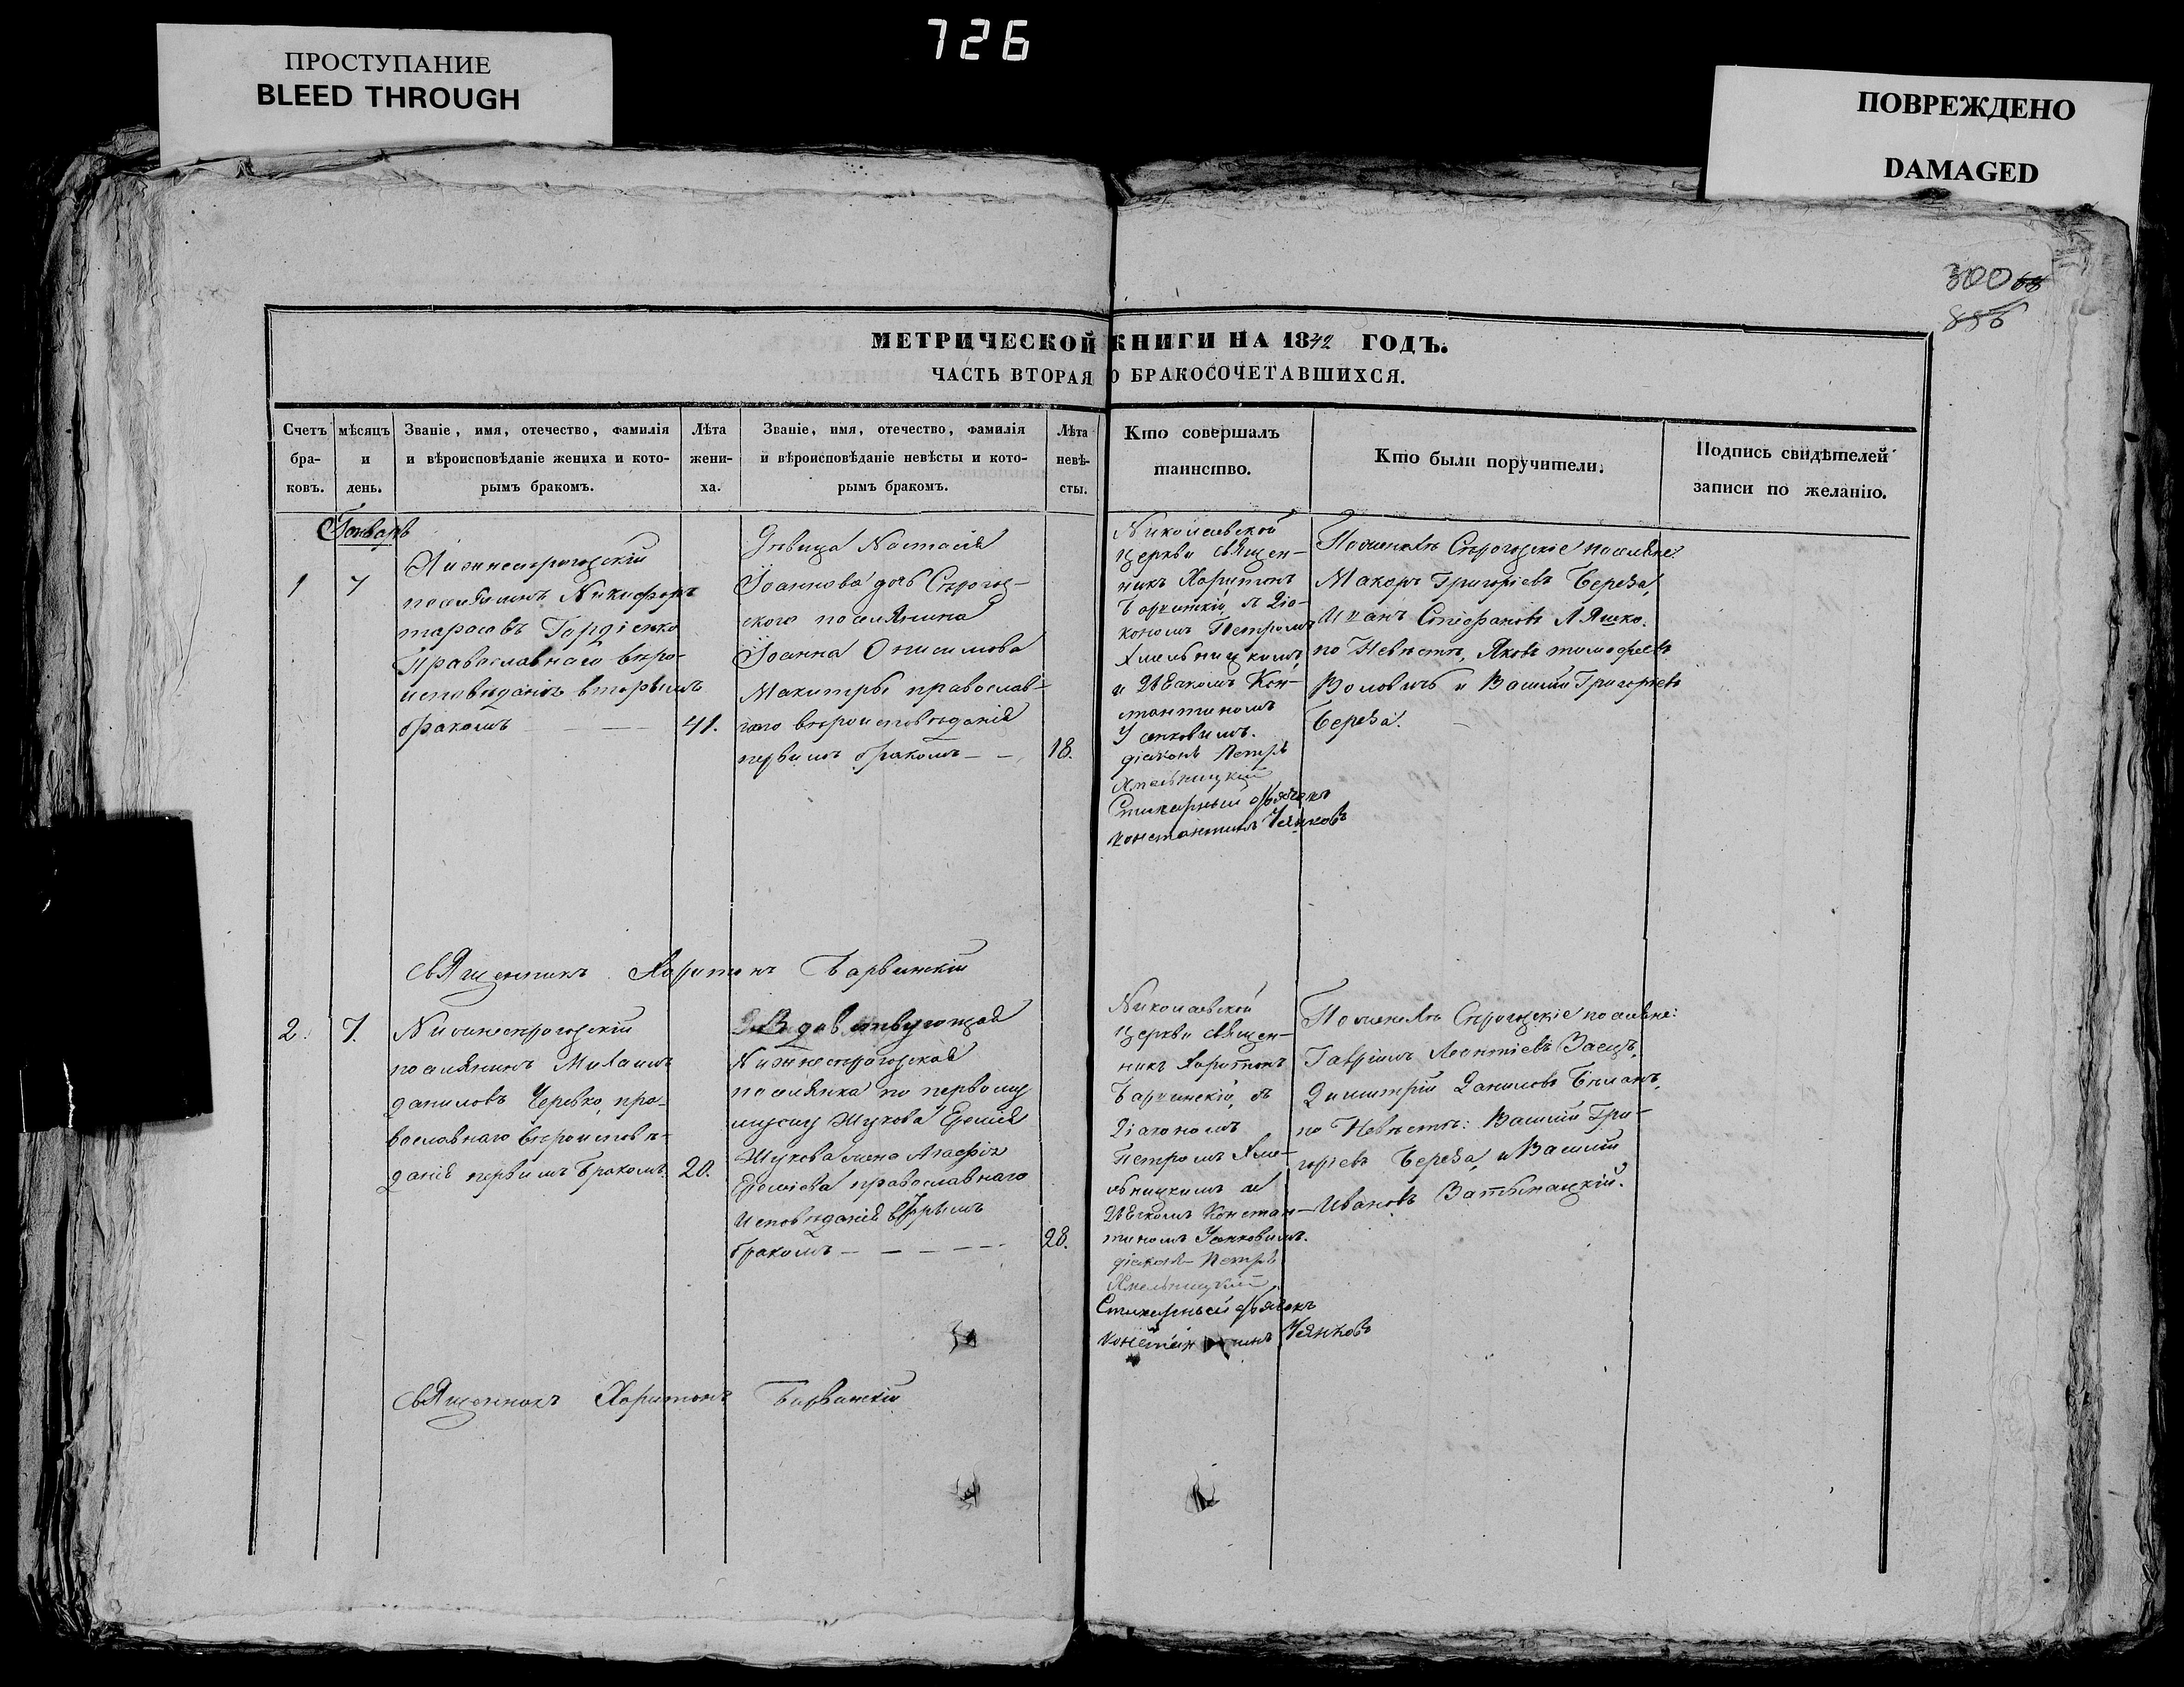 726
ПРОСТУПАНИЕ
BLEED THROUGH
ПОВРЕЖДЕНО
DAMAGED
300 68
856
МЕТРИЧЕСКОЙ КНИГИ НА 1842 ГОДЪ.
ЧАСТЬ ВТОРАЯ О БРАКОСОЧЕТАВШИХСЯ.
Счетъ бра-ковъ.
мѣсяцъ и день.
Званіе, имя, отечество, фамилія
и вѣроисповѣданіе жениха и кото-
рымъ бракомъ.
Лѣта жени-ха.
Званіе, имя, отечество, фамилія
и вѣроисповѣданіе невѣсты и кото-
рымъ бракомъ.
Лѣта невѣ-сты.
Кто совершалъ
таинство.
Кто были поручители.
Подпись свидѣтелей
записи по желанію.
Генварь
1
7
Нижнесѣрогозскій
поселянинъ Никифоръ
тарасовъ Гордіенко
Православнаго вѣро-
исповѣданія вторымъ
бракомъ
41.
Дѣвица Настасія
Іоаннова дочь Сѣрогоз-
ского поселянина
Іоанна Онисимова
Макитры православ-
наго вѣроисповѣданія
первымъ бракомъ
18.
Николаевской
церкви священ-
никъ Харитонъ
Барвинскій, съ Діа-
кономъ Петромъ
Хмельницкимъ
и Дьячкомъ Кон-
стантиномъ
діаконъ Петръ
Хмельницкій
Стихарный дьячекъ
Константинъ
По женихѣ Сѣрогозскіе поселяне:
Макаръ Григоріевъ Береза,
Иванъ Стефановъ Ляшко.
по Невѣстѣ, Яковъ тимофеевъ
Воловичъ и Василій Григорьевъ
Береза.
Священникъ Харитонъ Барвинскій
2.
7.
Нижнесѣрогозскій
поселянинъ Михаилъ
даниловъ Черевко, пра-
вославнаго вѣроисповѣ-
данія первымъ бракомъ.
20.
Вдовствующая
Нижнесѣрогозская
поселянка по первому
мужу Жукова
Жукова жена Агафія
православнаго
Исповѣданія вторымъ
бракомъ
28.
Николаевской
церкви священ-
никъ Харитонъ
Барвинскій, съ
Діакономъ
Петромъ Хме-
льницкимъ и
Дьячкомъ Констан-
тиномъ
діаконъ Петръ
Хмельницкій
Стихарный дьячекъ
Константинъ
По женихѣ Сѣрогозскіе поселяне:
Гавріилъ Леонтіевъ Заецъ,
Димитрій Даниловъ
по Невѣстѣ: Василій Гри-
горіевъ Береза, и Василій
Ивановъ
Священникъ Харитонъ Барвинскій